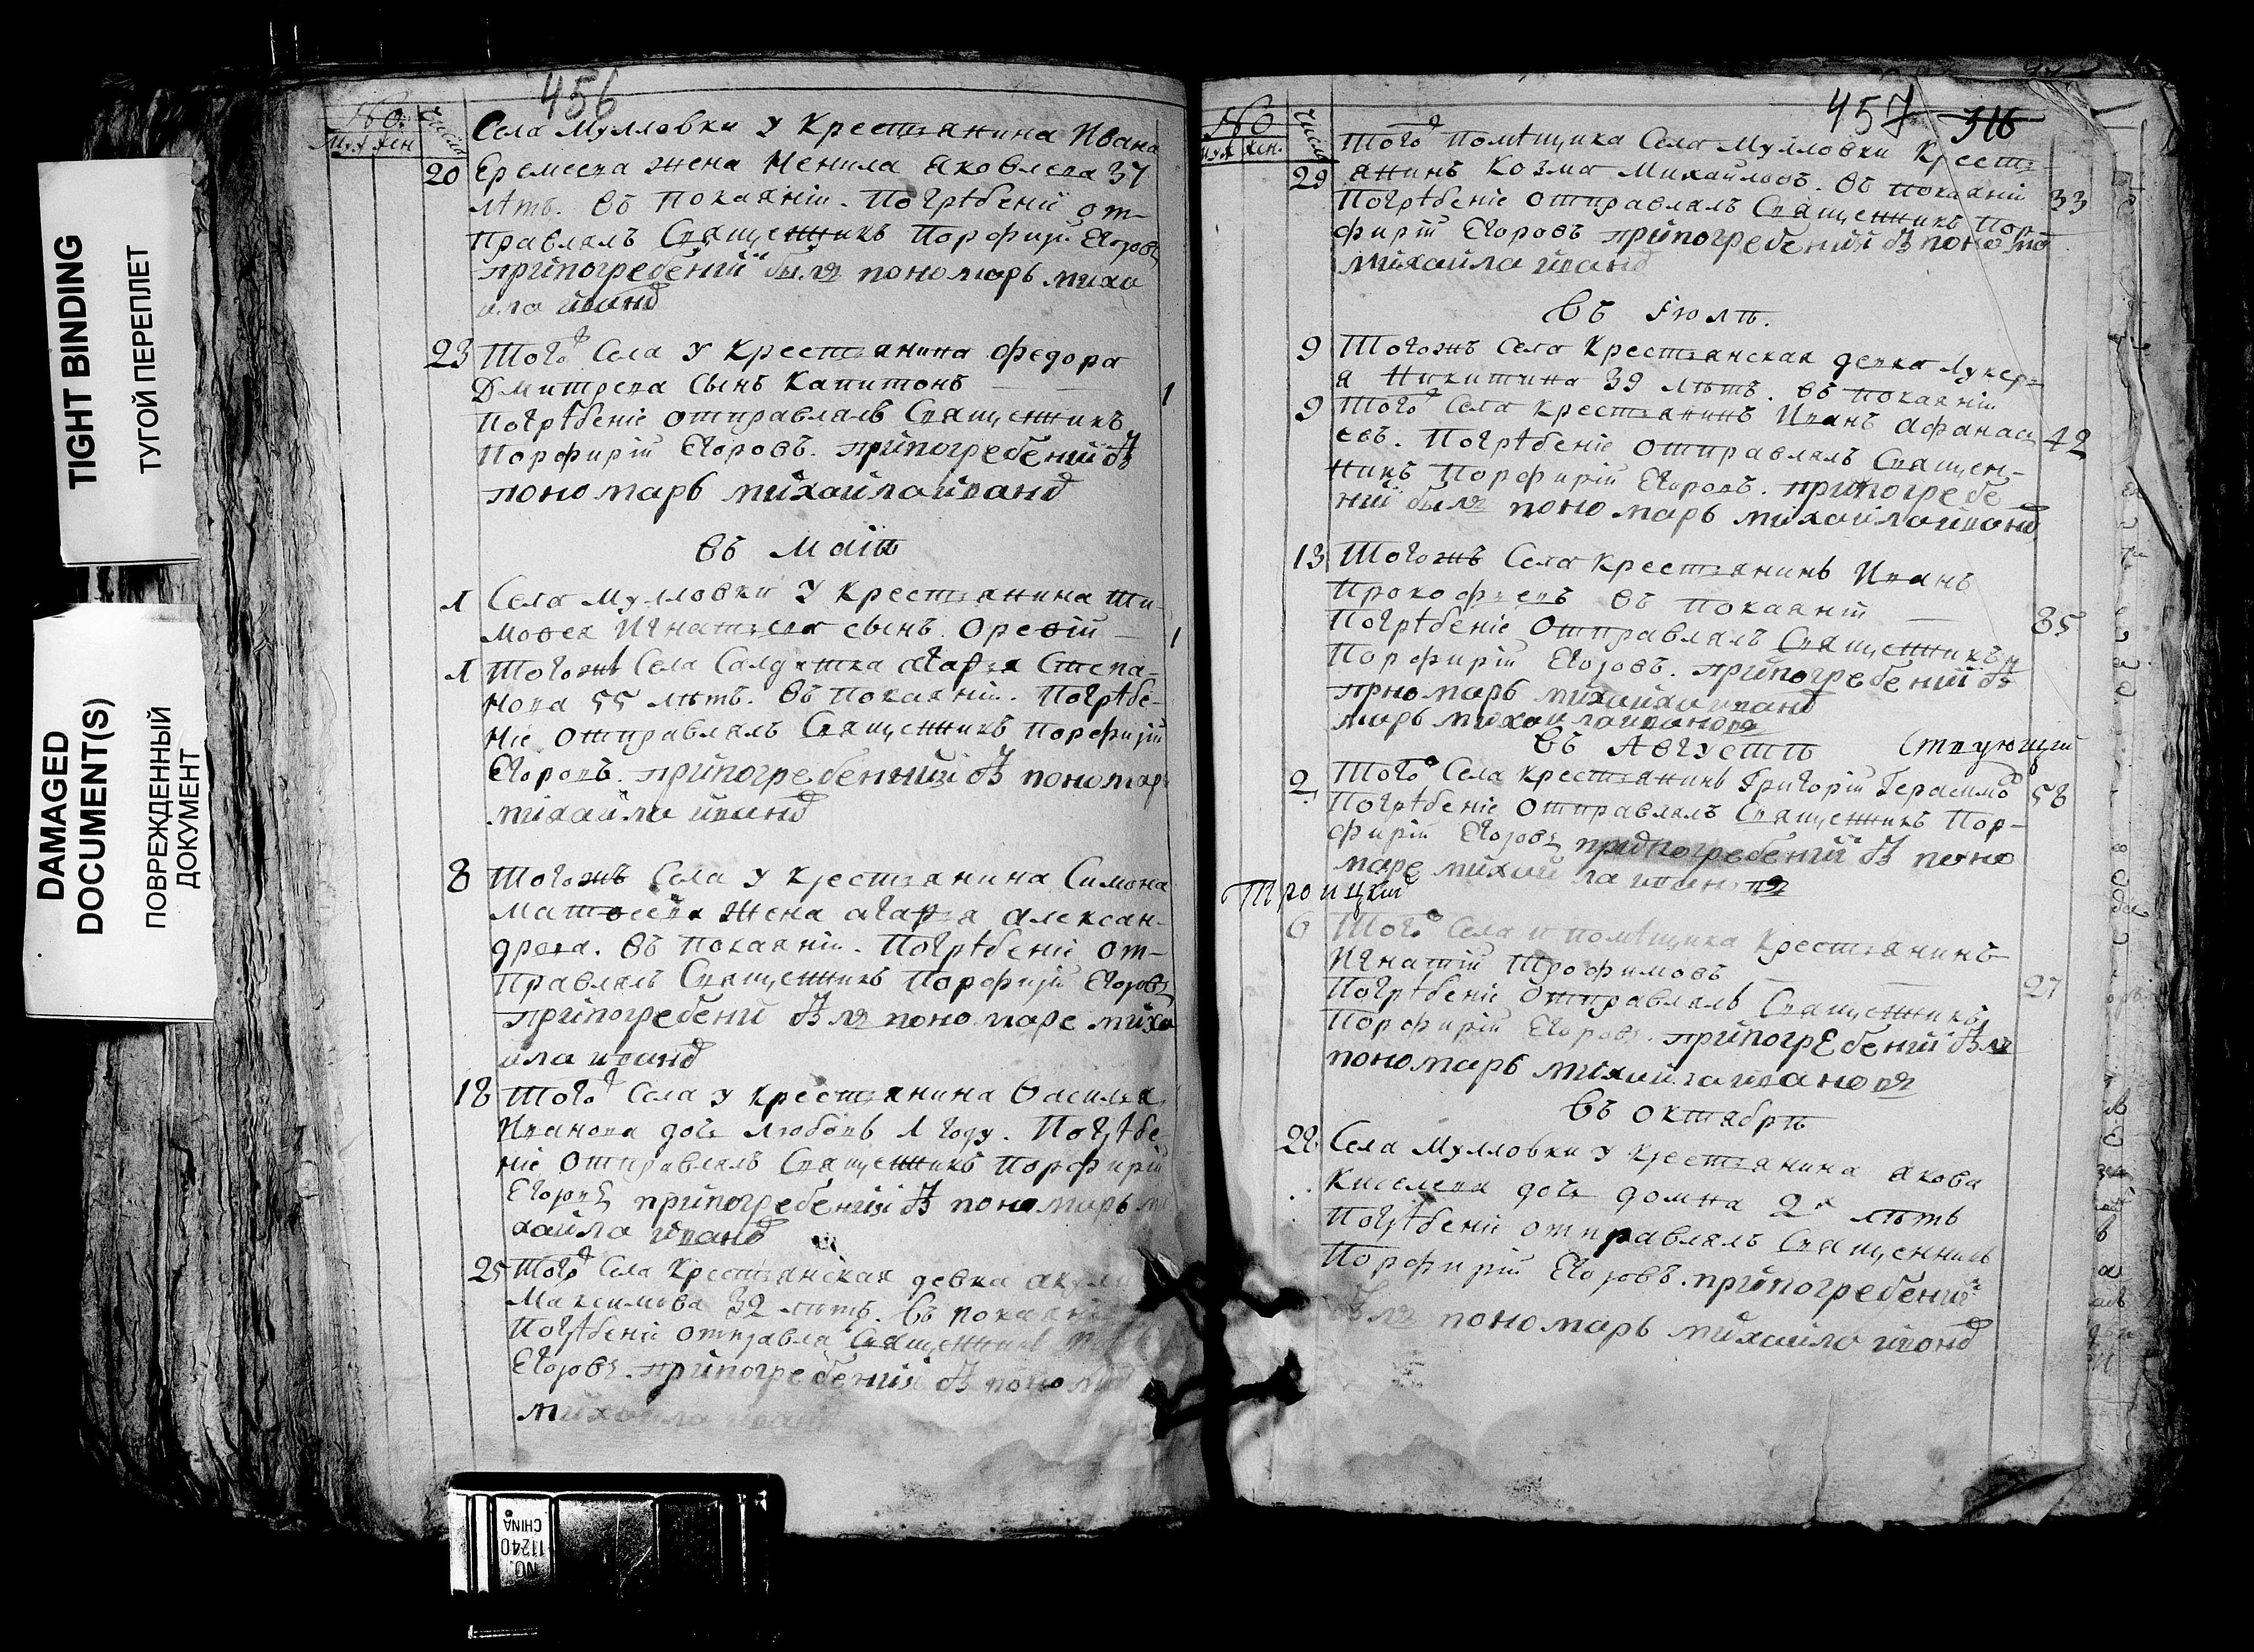 TIGHT BINDING
ТУГОЙ ПЕРЕПЛЕТ
DAMAGED
DOCUMENT(S)
ПОВРЕЖДЕННЫЙ
ДОКУМЕНТ
456
No
муж жен
числа
Села Мулловки у крестьянина Ивана
20 Еремеева жена Ненила Яковлева 37
лѣтъ. въ покаяніи. Погрѣбеніе от-
правлялъ Священникъ Порфирій Егоровъ
припогребеніи былъ пономарь миха
ила иванов
23 Того Села у крестьянина Федора
Дмитрева сынъ Капитонъ — 1
Погрѣбеніе отправлялъ Священникъ
Порфирій Егоровъ. припогребеніи б
пономарь михаила иванов
въ Маіѣ
1 Села Мулловки у крестьянина Ти-
мофея Игнатьева сынъ Орефій — 1
1 Тогожъ Села Салдатка Агафья Степа-
нова 55 лѣтъ. въ покаяніи. Погрѣбе-
ніе отправлялъ Священникъ Порфирій
Егоровъ. припогребенији б пономарь
михаила иванов
8 Тогожъ Села у крестьянина Симона
Матвеева жена Агафья Алексан-
дрова. въ покаяніи. Погрѣбеніе от-
правлялъ Священникъ Порфирій Егоровъ
припогребени былъ пономаре миха
ила иванов
18 Того Села у крестьянина Василья
Иванова дочь Любовь 1 году. Погрѣбе
ніе отправлялъ Священникъ Порфирій
Егоровъ припогребеніи б пономарь ми
хаила иванов
25 Того Села Крестьянская девка Акули
Максимова 32 лѣтъ. въ покаяні
Погрѣбеніе отправлялъ Священникъ
Егоровъ. припогребеніи б поном
михаила иванов
NO. 11240
CHINA
457 316
No
муж жен.
числа
Того помѣщика Села Мулловки Кресть
29 янинъ Козма Михайловъ. въ покаяніи 33
Погрѣбеніе отправлялъ Священникъ Пор-
фирій Егоровъ припогребеніи б поно
михаила иванов
въ Iюлѣ.
9 Тогожъ Села Крестьянская девка Лукерь
я Никитина 39 лѣтъ. въ покаяніи
9 Того Села Крестьянинъ Иванъ Афанась 42
евъ. Погрѣбеніе отправлялъ Священ-
никъ Порфирій Егоровъ. припогребе
ніи былъ пономарь михаила иванов
13 Тогожъ Села крестьянинъ Иванъ
Прокофьевъ въ покаяніи — 85
Погрѣбеніе отправлялъ Священникъ
Порфирій Егоровъ. припогребеніи б
пономарь михаила иванов
марь михаила иванова
въ Августѣ
2 Того Села крестьянинъ Григорій Герасимо 58
Погрѣбеніе отправлялъ Священникъ Пор-
фирій Егоровъ припогребеніи б поно
маре михаила иванов
Троицкій
6 Того Села и помѣщика крестьянинъ
Игнатій Трофимовъ — 27
Погрѣбеніе отправлялъ Священникъ
Порфирій Егоровъ. припогребеніи былъ
пономарь михаила ивановъ
въ октябрѣ
22 Села Мулловки у крестьянина Якова
Киселева дочь домна 2х лѣтъ
Погрѣбеніе отправлялъ Священникъ
Порфирій Егоровъ. припогребеніи
былъ пономарь михаило иванов